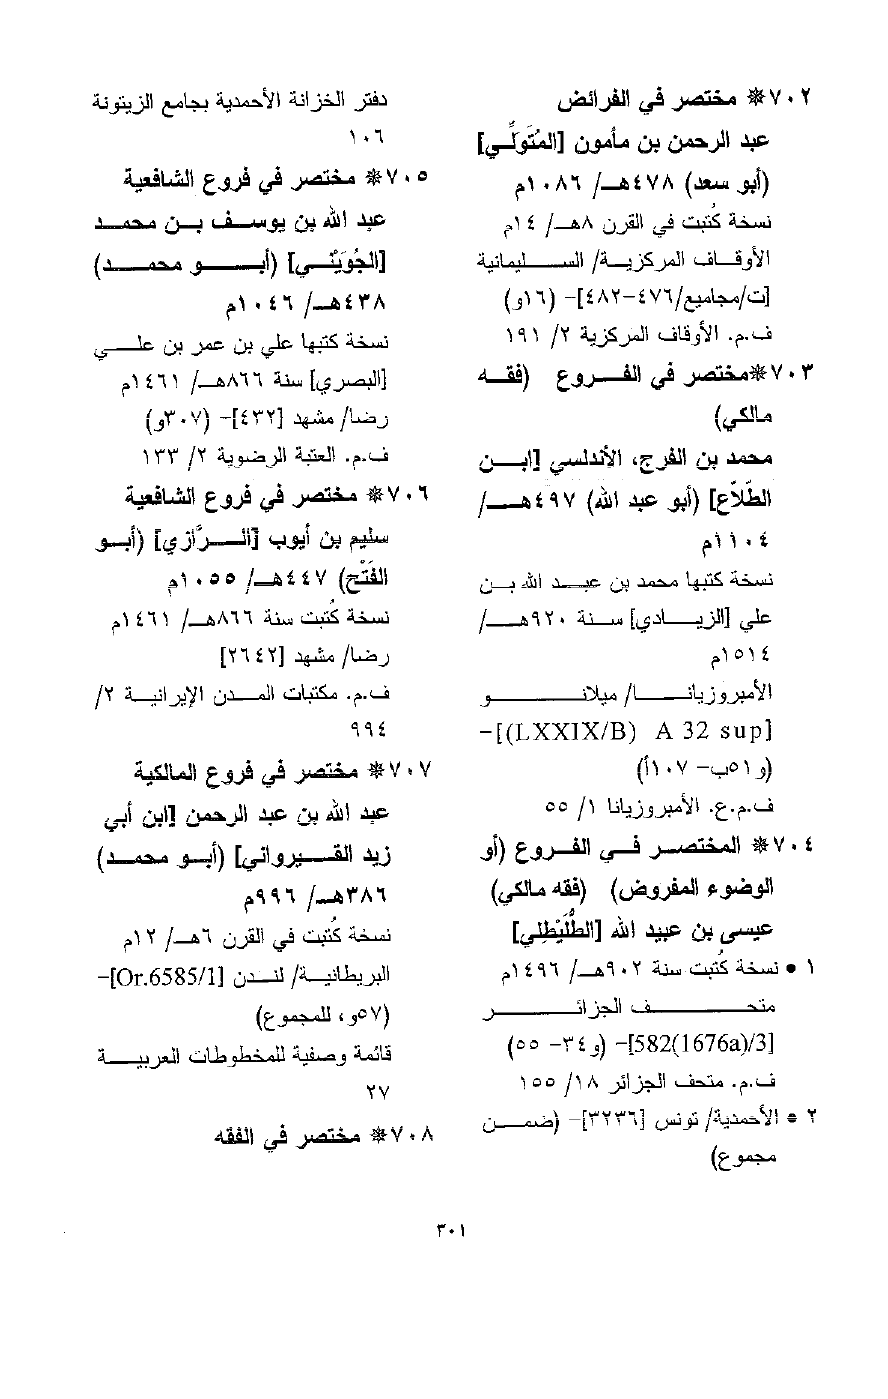 ٧٠٢* مختصر في الفرائض
عبد الرحمن بن مأمون [المُتَولِّي]
(أبو سعد) ٤٧٨هـ/ ١٠٨٦م
نسخة كُتبت في القرن ٨هـ/ ١٤م
الأوقاف المركزية/ السليمانية
[ت/مجاميع/٤٧٦-٤٨٢]- (١٦و)
ف.م. الأوقاف المركزية ٢/ ١٩١
٧٠٣*مختصر في الفروع (فقه
مالكي)
محمد بن الفرج، الأندلسي [ابن
الطَّلَّاع] (أبو عبد الله) ٤٩٧هـ/
١١٠٤م
نسخة كتبها محمد بن عبد الله بن
علي [الزيادي] سنة ٩٢٠هـ/
١٥١٤م
الأمبروزيانا/ ميلانو
[LXXIX/B) A 32 sup)]-
(و٥١ب- ١٠٧أ)
ف.م.ع. الأمبروزيانا ١/ ٥٥
٧٠٤* المختصر في الفروع (أو
الوضوء المفروض) (فقه مالكي)
عيسى بن عبيد الله [الطُّلَيْطِلي]
١ • نسخة كُتبت سنة ٩٠٢هـ/ ١٤٩٦م
متحف الجزائر
[582(1676a)/3]- (و٣٤- ٥٥)
ف.م. متحف الجزائر ١٨/ ١٥٥
٢ • الأحمدية/ تونس [٣٢٣٦]- (ضمن
مجموع)
دفتر الخزانة الأحمدية بجامع الزيتونة
١٠٦
٧٠٥* مختصر في فروع الشافعية
عبد الله بن يوسف بن محمد
[الجُوَيْني] (أبو محمد)
٤٣٨هـ/ ١٠٤٦م
نسخة كتبها علي بن عمر بن علي
[البصري] سنة ٨٦٦هـ/ ١٤٦١م
رضا/ مشهد [٤٣٢]- (٣٠٧و)
ف.م. العتبة الرضوية ٢/ ١٣٣
٧٠٦* مختصر في فروع الشافعية
سليم بن أيوب [الرَّازي] (أبو
الفَتْح) ٤٤٧هـ/ ١٠٥٥م
نسخة كُتبت سنة ٨٦٦هـ/ ١٤٦١م
رضا/ مشهد [٢٦٤٢]
ف.م. مكتبات المدن الإيرانية ٢/
٩٩٤
٧٠٧* مختصر في فروع المالكية
عبد الله بن عبد الرحمن [ابن أبي
زيد القيرواني] (أبو محمد)
٣٨٦هـ/ ٩٩٦م
نسخة كُتبت في القرن ٦هـ/ ١٢م
البريطانية/ لندن [Or.6585/1]-
(٥٧و، للمجموع)
قائمة وصفية للمخطوطات العربية
٢٧
٧٠٨* مختصر في الفقه
٣٠١